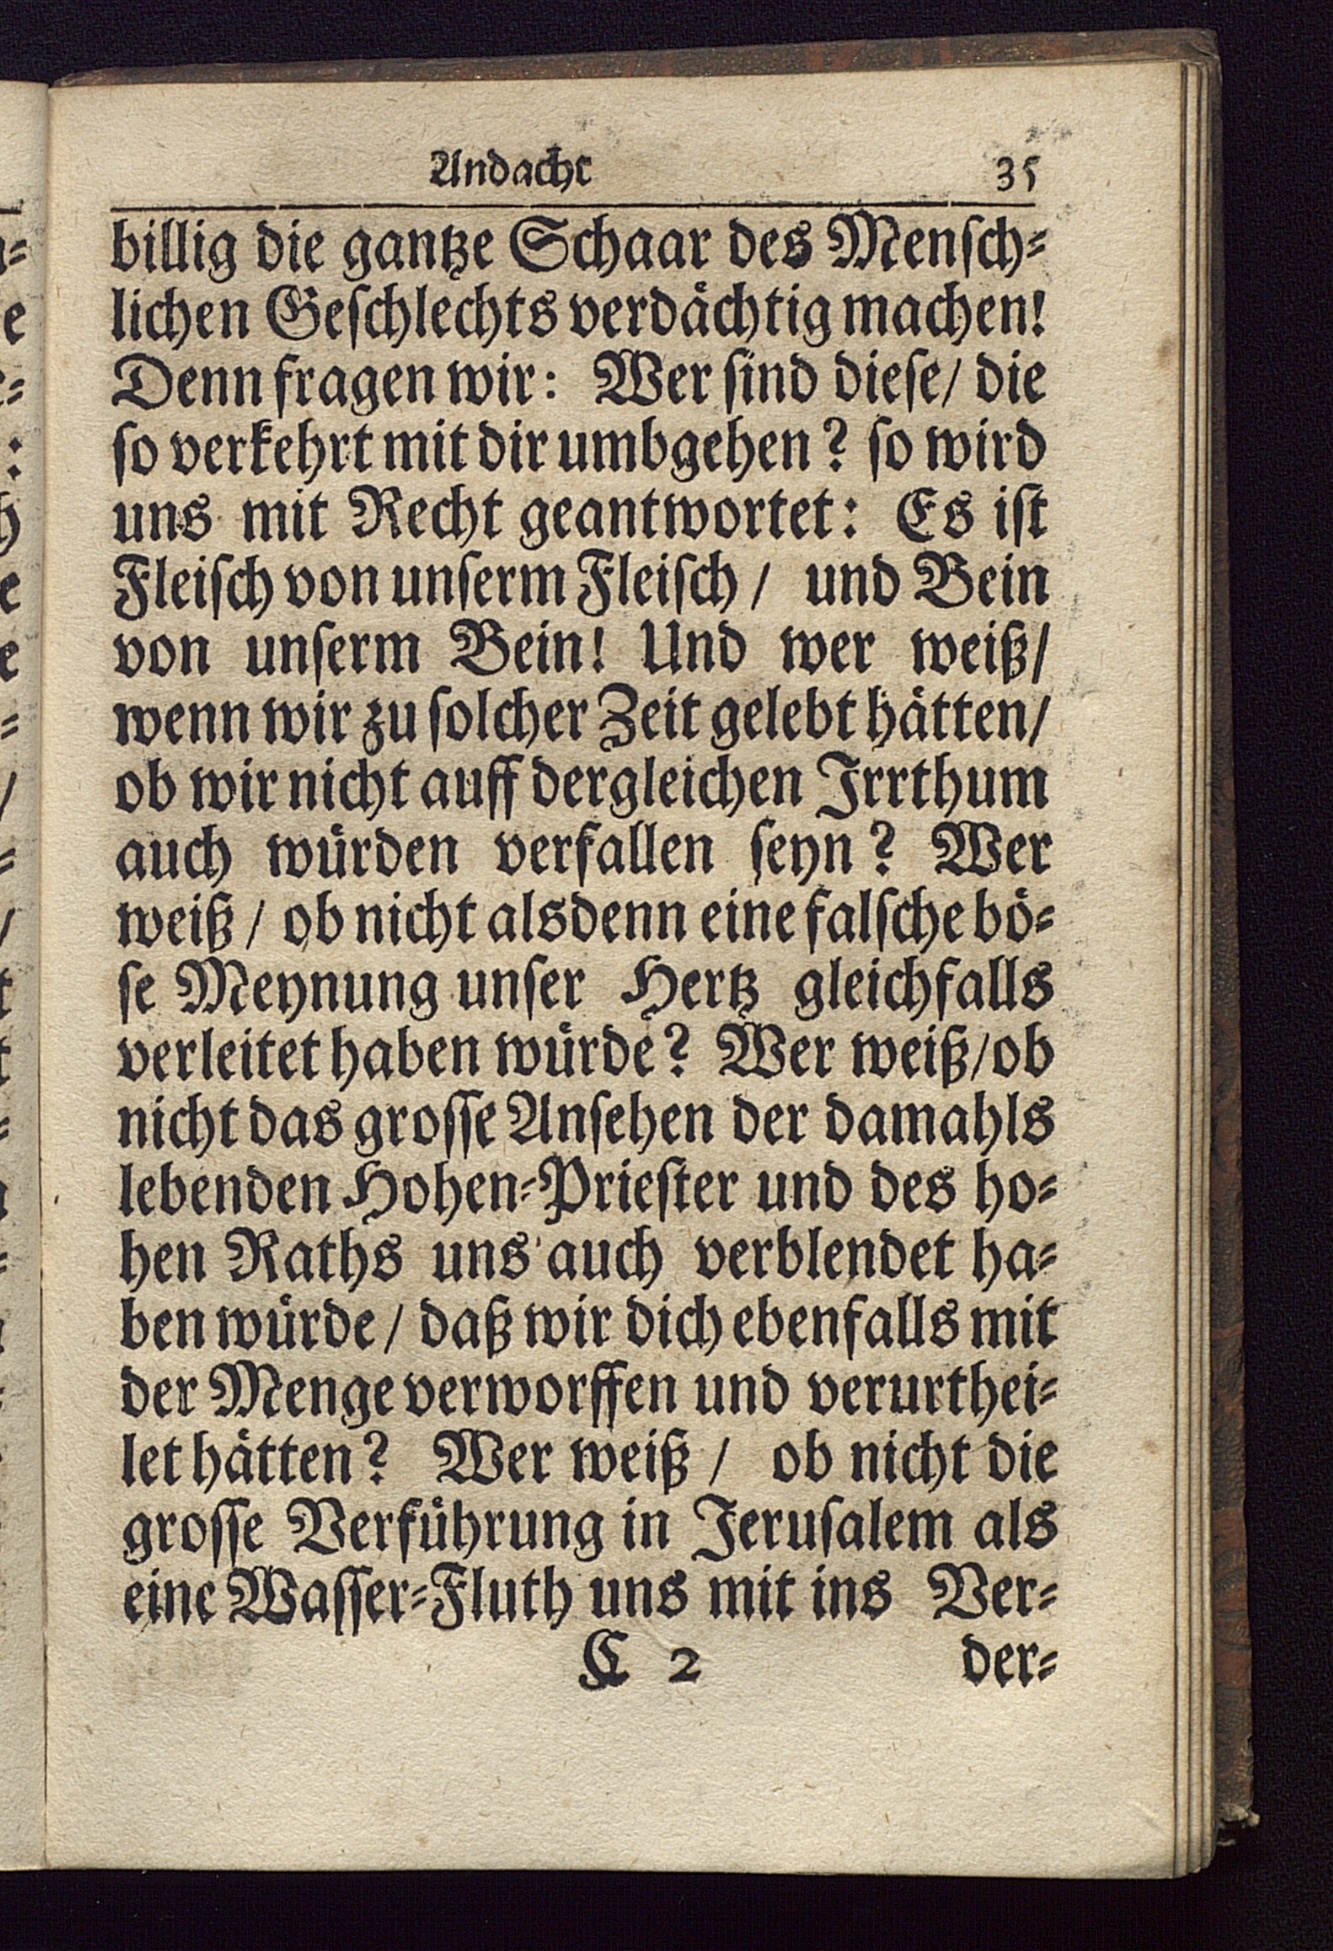 Andacht 35
billig die gantze Schaar des Mensch-
lichen Geschlechts verdächtig machen!
Denn fragen wir: Wer sind diese/ die
so verkehrt mit dir umbgehen? so wird
uns mit Recht geantwortet: Es ist
Fleisch von unserm Fleisch/ und Bein
von unserm Bein! Und wer weiß/
wenn wir zu solcher Zeit gelebt hätten/
ob wir nicht auff dergleichen Irrthum
auch würden verfallen seyn? Wer
weiß/ ob nicht alsdenn eine falsche bö-
se Meynung unser Hertz gleichfalls
verleitet haben würde? Wer weiß/ob
nicht das grosse Ansehen der damahls
lebenden Hohen-Priester und des ho-
hen Raths uns auch verblendet ha-
ben würde/ daß wir dich ebenfalls mit
der Menge verworffen und verurthei-
let hätten? Wer weiß/ ob nicht die
grosse Verführung in Jerusalem als
eine Wasser-Fluth uns mit ins Ver-
C 2 der-